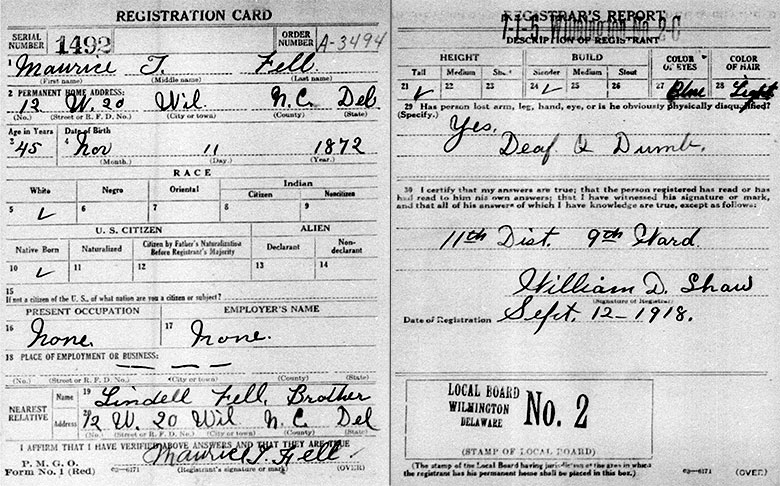 REGISTRATION CARD
SERIAL NUMBER 1492 ORDER NUMBER A-3494
1 Maurice T. Fell
(First name) (Middle name) (Last name)
2 PERMANENT HOME ADDRESS:
12 W. 20 Wil. N.C. Del
(No.) (Street or R. F. D. No.) (City or town) (County) (State)
Age in Years Date of Birth
3 45 4 Nov 11 1872
(Month.) (Day.) (Year.)
RACE
White Negro Oriental Indian
Citizen Noncitizen
5 ✓ 6 7 8 9
U. S. CITIZEN ALIEN
Native Born Naturalized Citizen by Father's Naturalization Before Registrant's Majority Declarant Non-declarant
10 ✓ 11 12 13 14
15
If not a citizen of the U. S., of what nation are you a citizen or subject?
PRESENT OCCUPATION EMPLOYER'S NAME
16 None. 17 None.
18 PLACE OF EMPLOYMENT OR BUSINESS:
— — —
(No.) (Street or R. F. D. No.) (City or town) (County) (State)
NEAREST RELATIVE Name 19 Lindell Fell, Brother
Address 20 12 W. 20 Wil N.C. Del
(No.) (Street or R. F. D. No.) (City or town) (County) (State)
I AFFIRM THAT I HAVE VERIFIED ABOVE ANSWERS AND THAT THEY ARE TRUE
P. M. G. O.
Form No. 1 (Red) 03-6171 Maurice T. Fell
(Registrant's signature or mark) (OVER)
REGISTRAR'S REPORT
7-1-5 Wilmington No. 2-C
DESCRIPTION OF REGISTRANT
HEIGHT BUILD COLOR OF EYES COLOR OF HAIR
Tall Medium Short Slender Medium Stout
21 ✓ 22 23 24 ✓ 25 26 27 Blue 28 Light
29 Has person lost arm, leg, hand, eye, or is he obviously physically disqualified?
(Specify.) Yes.
Deaf & Dumb.
30 I certify that my answers are true; that the person registered has read or has
had read to him his own answers; that I have witnessed his signature or mark,
and that all of his answers of which I have knowledge are true, except as follows:
11th Dist. 9th Ward.
William D. Shaw
(Signature of Registrar)
Date of Registration Sept. 12-1918.
LOCAL BOARD
WILMINGTON No. 2
DELAWARE
(STAMP OF LOCAL BOARD)
(The stamp of the Local Board having jurisdiction of the area in which
the registrant has his permanent home shall be placed in this box.)
03-6171 (OVER.)